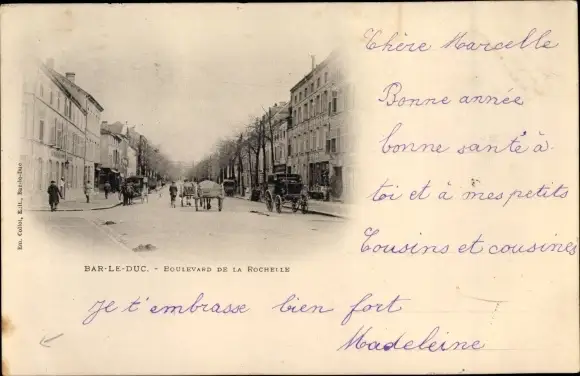 Chère Marcelle
Bonne année
bonne santé à
toi et à mes petits
Cousins et cousines
Em. Collot, Edit., Bar-le-Duc
BAR-LE-DUC. - BOULEVARD DE LA ROCHELLE
je t'embrasse bien fort
Madeleine